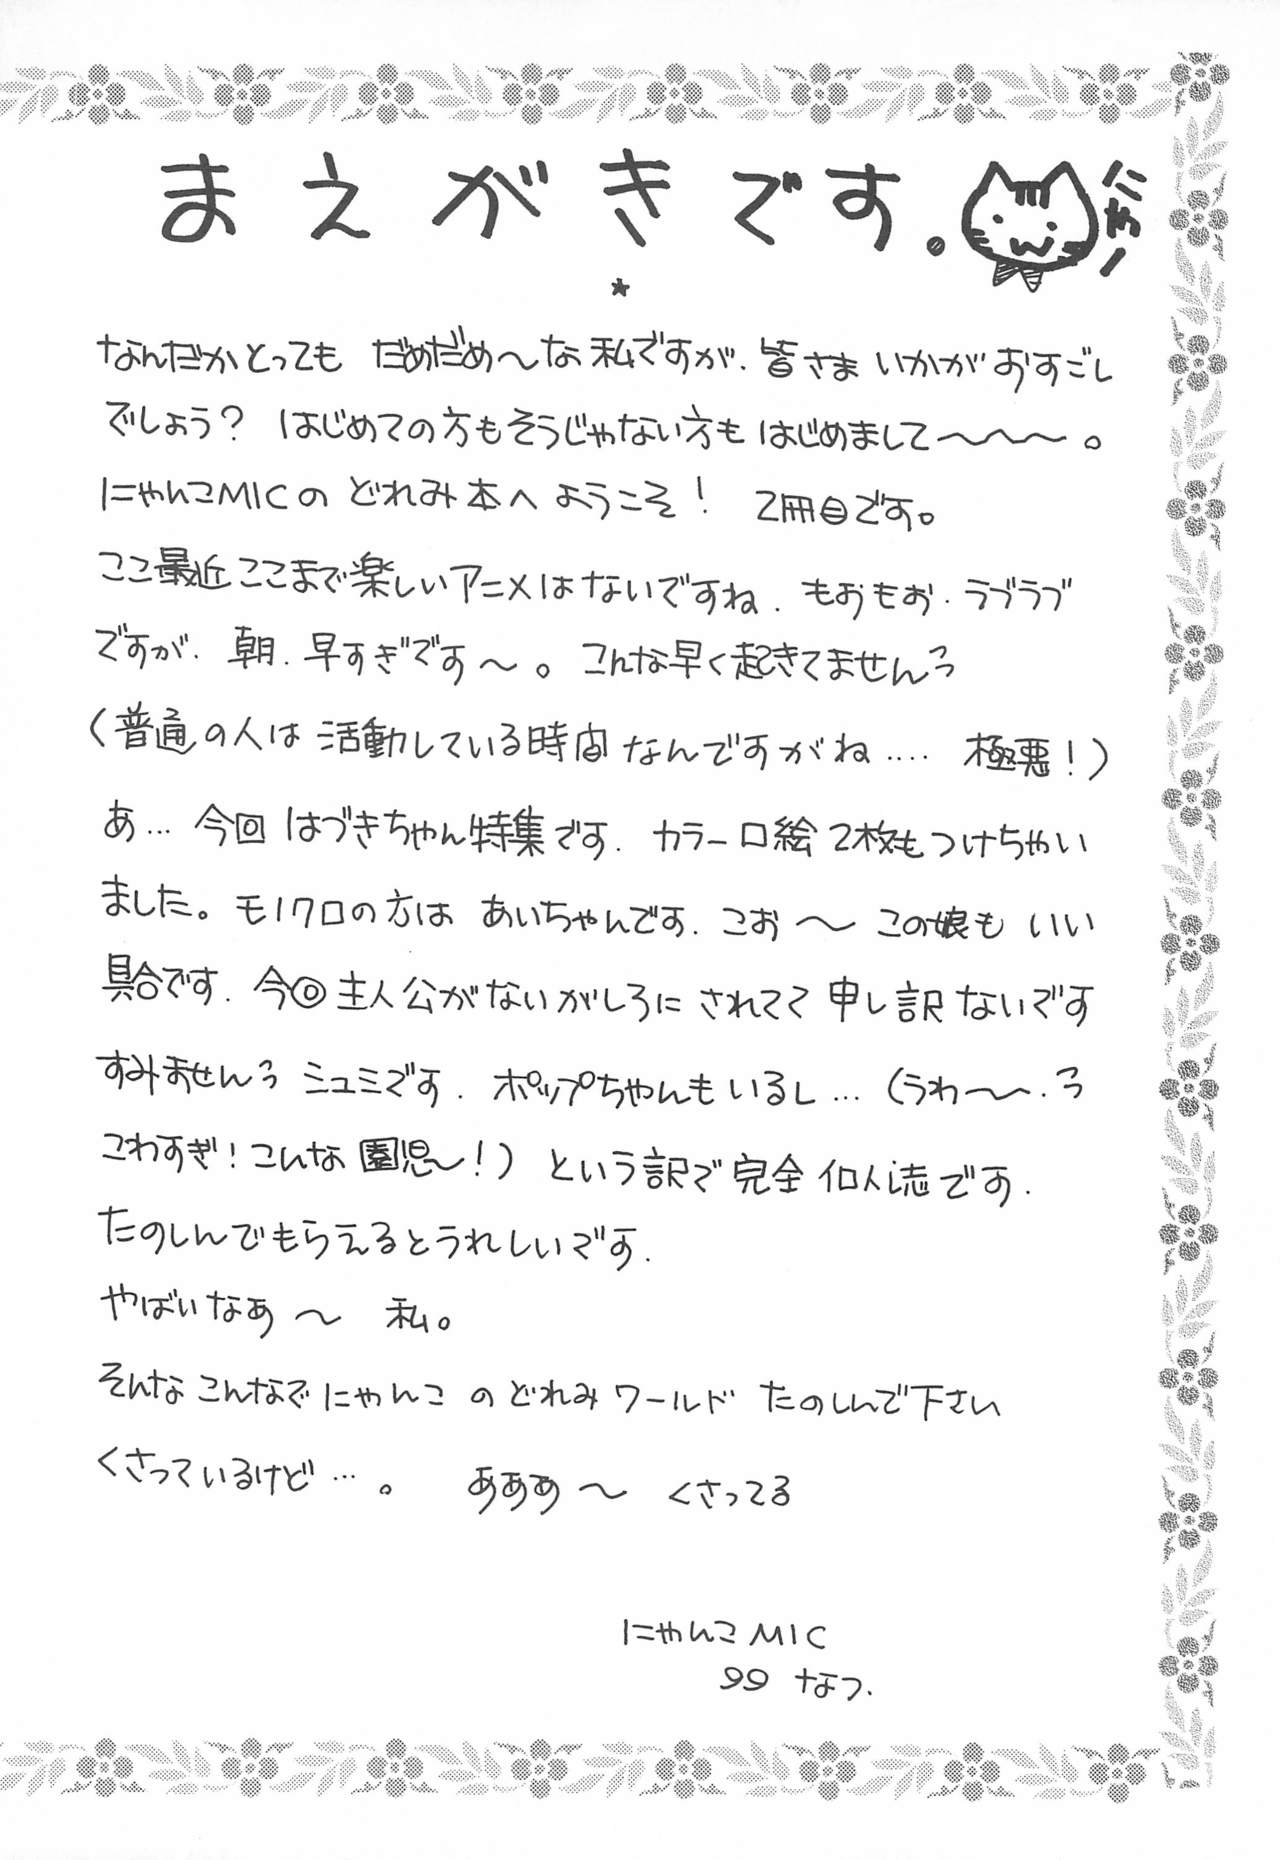 まえがきです.
にゃー
なんだかとっても だめだめ〜な私ですが. 皆さま いかがおすごし
でしょう? はじめての方もそうじゃない方も はじめまして〜〜〜。
にゃんこMICの どれみ本へ ようこそ! 2冊目です。
ここ最近ここまで楽しいアニメはないですね. もおもお. ラブラブ
ですが. 朝. 早すぎです〜。 こんな早く起きてませんっ
(普通の人は 活動している時間 なんですがね‥‥ 極悪!)
あ… 今回 はづきちゃん特集です. カラー口絵 2枚もつけちゃい
ました。モノクロの方は あいちゃんです. こお〜 この娘も いい
具合です. 今回主人公がないがしろに されてて 申し訳 ないです
すみませんっ シュミです. ポップちゃんもいるし… (うわ〜〜.っ
こわすぎ! こんな 園児〜!) という訳で完全 個人誌です.
たのしんでもらえるとうれしいです.
やばいなぁ〜 私。
そんな こんなで にゃんこ の どれみ ワールド たのしんで下さい
くさっているけど…。 あああ〜 くさってる
にゃんこMIC
99 なつ.